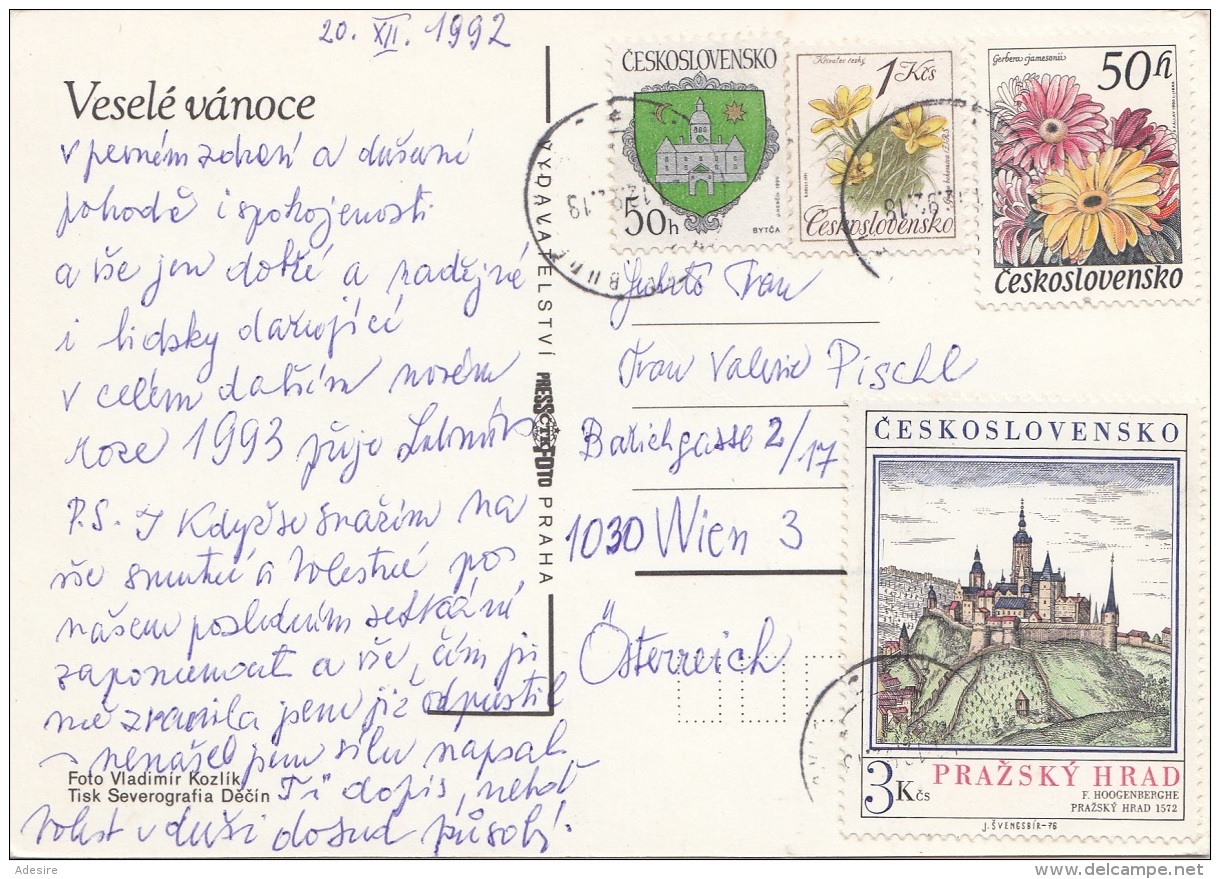 20. XII. 1992
Veselé vánoce
v pevném zdraví a duševní
pohodě i spokojenosti
a vše jen dobré a nadějné
i lidsky darující
v celém dalším novém
roce 1993 přeje
P.S. I když se snažím na
vše smutné a bolestné po
našem posledním setkání
zapomenout a vše, čím jsi
mě zranila jsem již odpustil
nenašel jsem sílu napsat
Ti dopis, neboť
bolest v duši dosud působí.
Foto Vladimír Kozlík
Tisk Severografia Děčín
VYDAVATELSTVÍ PRESSFOTO PRAHA
ČTK
ČESKOSLOVENSKO
50h
BYTČA
1 Kčs
Československo
Gerbera jamesonii
50h
Československo
Frau
Frau Valerie Pischl
Barichgasse 2/17
1030 Wien 3
Österreich
ČESKOSLOVENSKO
3 Kčs
PRAŽSKÝ HRAD
F. HOOGENBERGHE
PRAŽSKÝ HRAD 1572
J. ŠVENGSBÍR-76
Adesire
delcampe.net